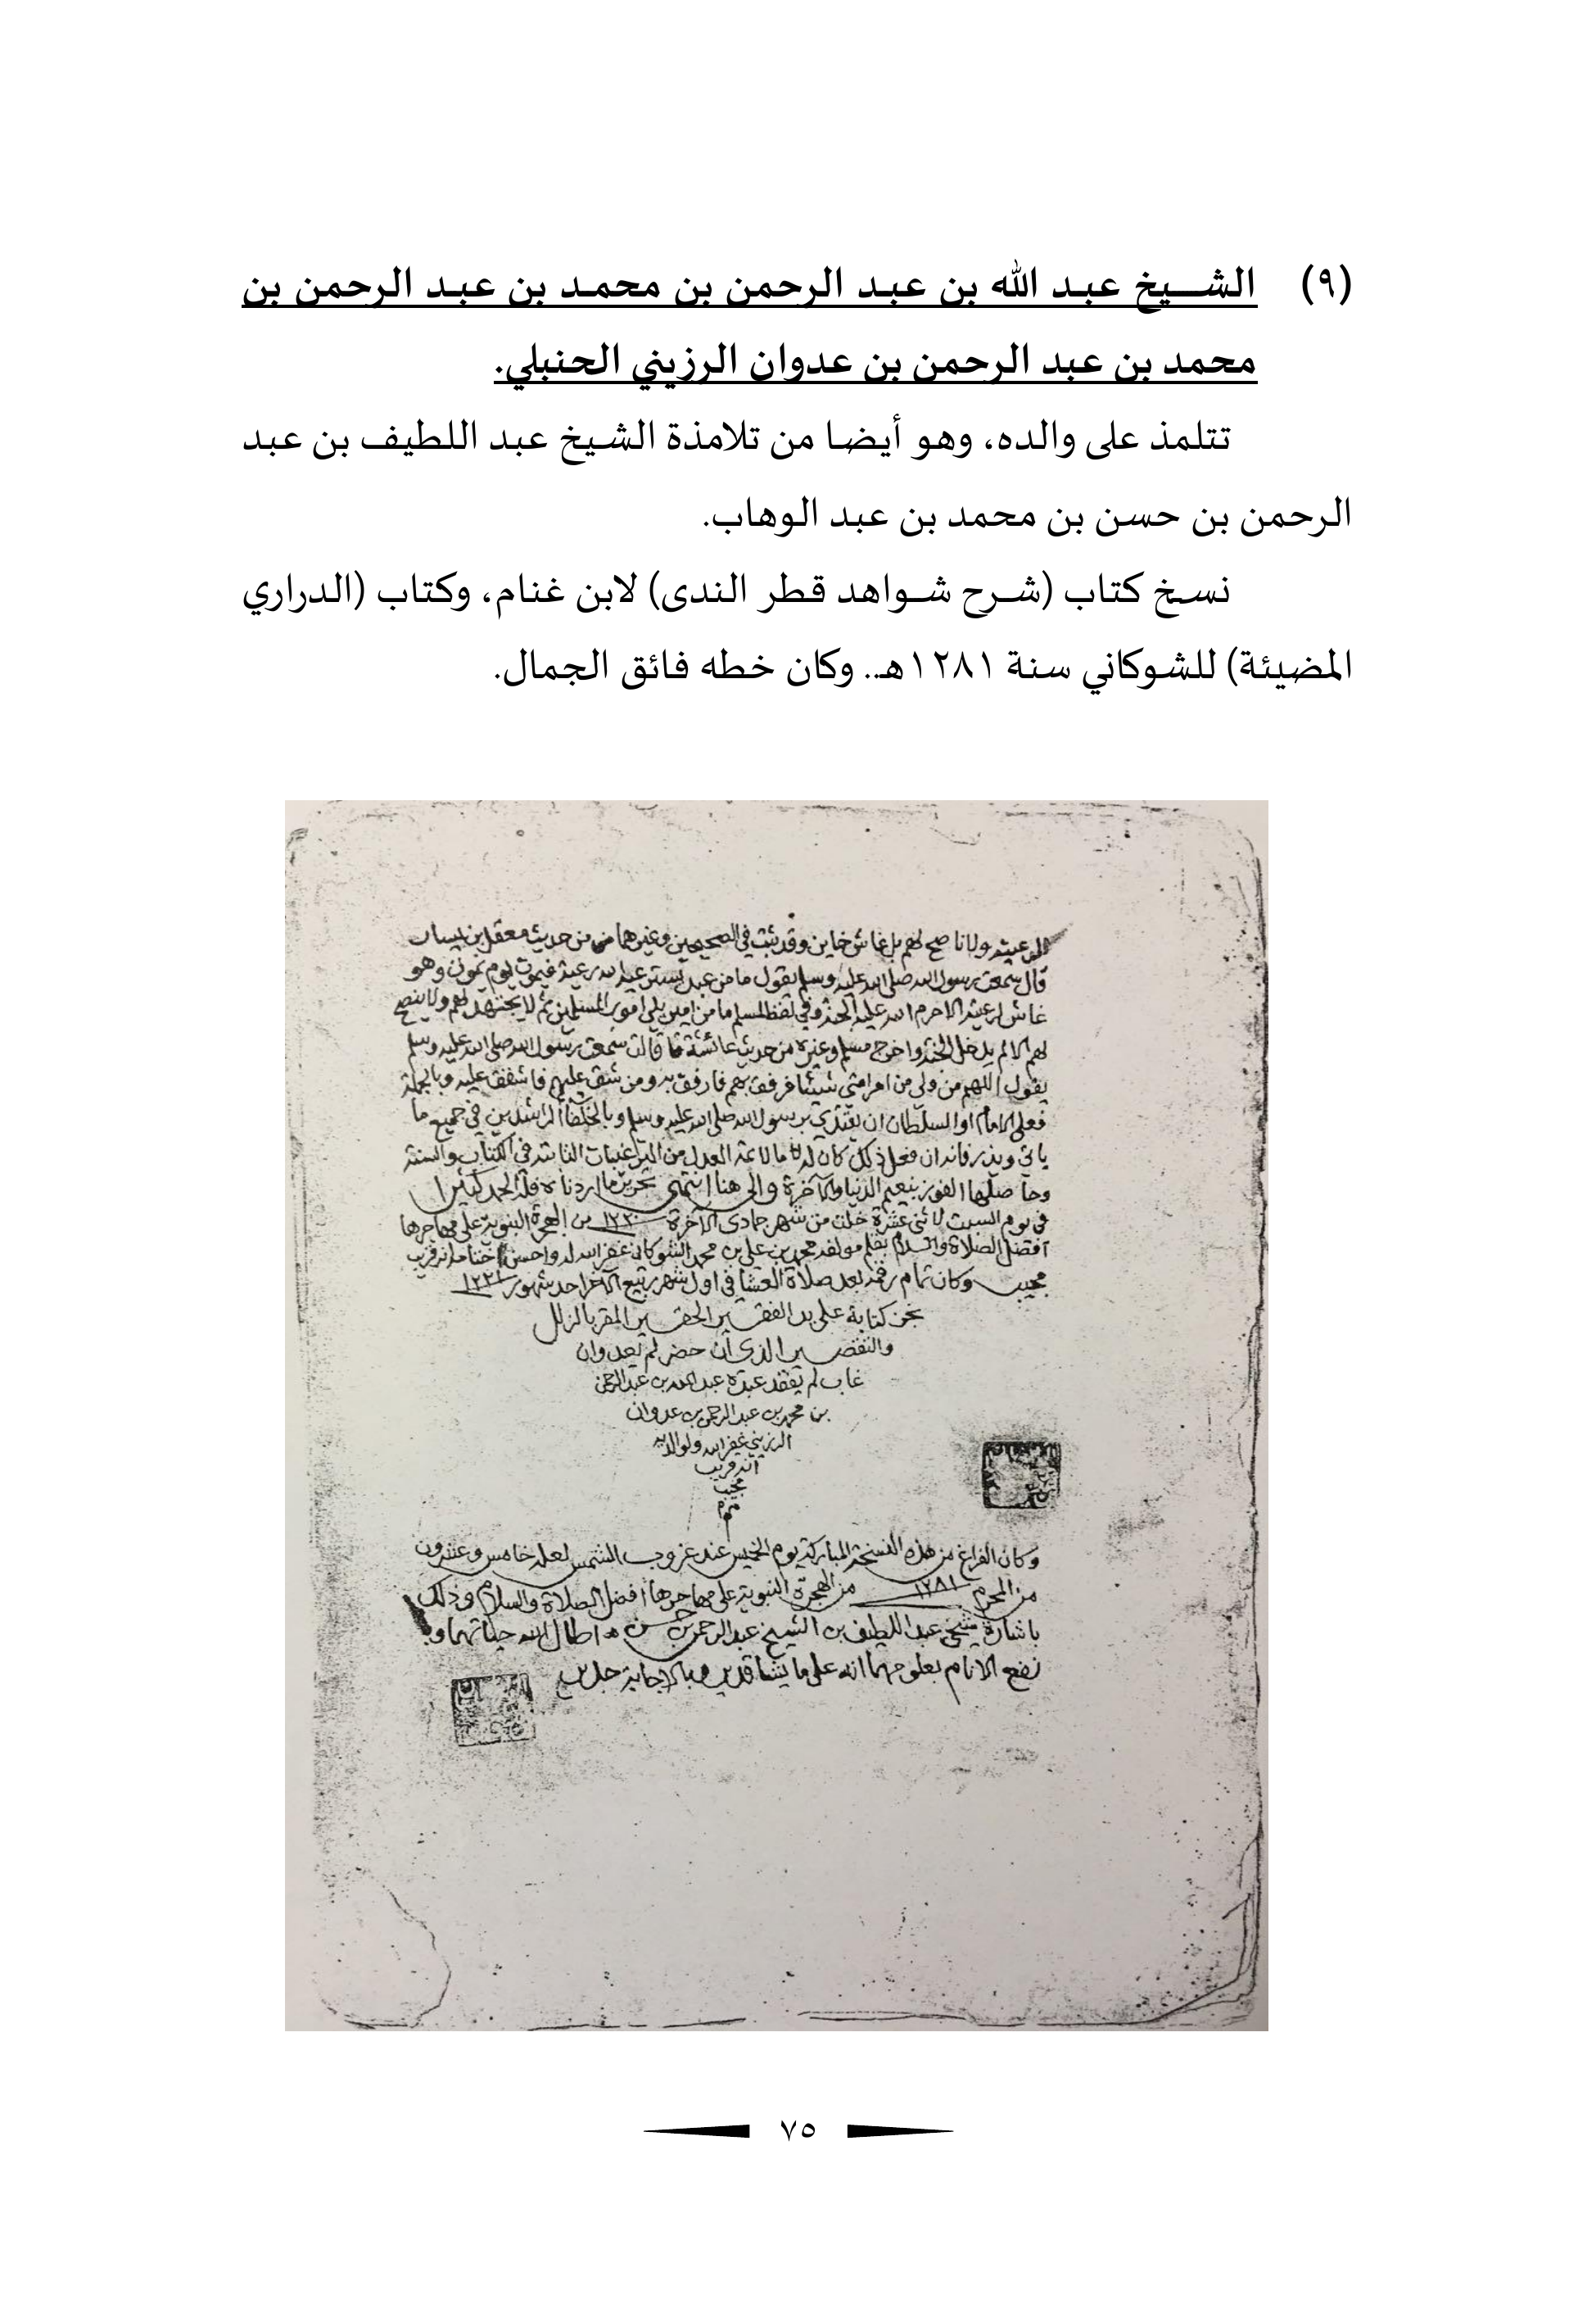 (٩) الشيخ عبد الله بن عبد الرحمن بن محمد بن عبد الرحمن بن
محمد بن عبد الرحمن بن عدوان الرزيني الحنبلي.
تتلمذ على والده، وهو أيضا من تلامذة الشيخ عبد اللطيف بن عبد
الرحمن بن حسن بن محمد بن عبد الوهاب.
نسخ كتاب (شرح شواهد قطر الندى) لابن غنام، وكتاب (الدراري
المضيئة) للشوكاني سنة ١٢٨١هـ.. وكان خطه فائق الجمال.
لرعيته ولا ناصح لهم بل غاش خاين وقد ثبت في الصحيحين وغيرهما من حديث معقل بن يسار
قال سمعت رسول الله صلى الله عليه وسلم يقول ما من عبد يسترعيه الله رعية فيموت يوم يموت وهو
غاش لرعيته الا حرم الله عليه الجنة وفي لفظ لمسلم ما من امير يلي امور المسلمين ثم لا يجتهد لهم ولا ينصح
لهم الا لم يدخل الجنة واخرج مسلم وغيره من حديث عائشة قالت سمعت رسول الله صلى الله عليه وسلم
يقول اللهم من ولي من امر امتي شيئا فرفق بهم فارفق به ومن شق عليهم فاشقق عليه وبالجملة
فعلى الامام او السلطان ان يقتدي برسول الله صلى الله عليه وسلم وبالخلفا الراشدين في جميع ما
ياتي ويذر فانه ان فعل ذلك كان له ما لائمة العدل من الترغيبات الثابتة في الكتاب والسنة
وحاصلها الفوز بنعيم الدنيا والآخرة والى هنا انتهى تحرير ما اردناه فلله الحمد كثيرا
في يوم السبت لاثني عشرة خلت من شهر جمادى الآخرة ١٢٢٠ من الهجرة النبوية على مهاجرها
افضل الصلاة والسلام بقلم مولفه محمد بن علي بن محمد الشوكاني غفر الله له واحسن ختامه انه قريب
مجيب وكان تمام رقمه بعد صلاة العشا في اول شهر ربيع الآخر احد شهور ١٢٢١
كتابة على يد الفقير الحقير المقر بالزلل
والتقصير الذي ان حضر لم يعد وان
غاب لم يفقد عبده عبد الله بن عبد الرحمن
بن محمد بن عبد الرحمن بن عدوان
الرزيني غفر الله له ولوالديه
انه قريب
مجيب
وكان الفراغ من هذه النسخة المباركة يوم الخميس عند غروب الشمس لعله خامس وعشرون
من المحرم ١٢٨١ من الهجرة النبوية على مهاجرها افضل الصلاة والسلام وذلك
باشارة شيخي عبد اللطيف بن الشيخ عبد الرحمن بن حسن اطال الله حياتهما و
نفع الانام بعلومهما انه على ما يشا قدير وبالاجابة جدير
٧٥